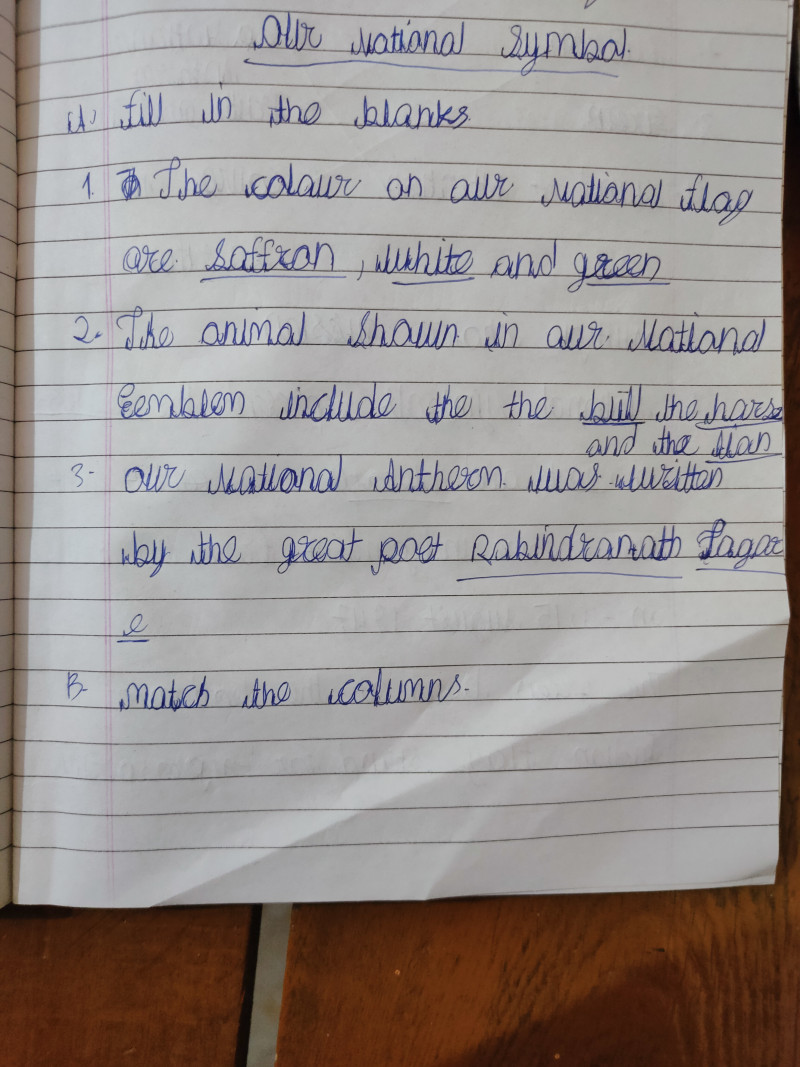 Our National Symbol.
A) fill in the blanks
1. The colour on our National flag
are saffron, white and green
2. The animal shown in our National
Eemblem include the the bull the horse
and the lion
3- our National Anthem was written
by the great poet Rabindranath Tagor
e
B- match the columns.